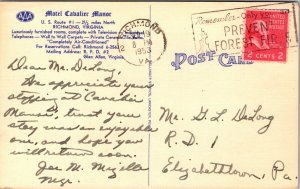 AAA
Motel Cavalier Manor
U. S. Route #1 - 2½ miles North
RICHMOND, VIRGINIA
Luxuriously furnished rooms, complete with Television
Wall to Wall Carpets - Private
"Completely Air-Conditioned"
For Reservations Call: Richmond
Mailing Address: R. F. D. #2
Glen Allen, Virginia
RICHMOND
8 PM
1953
VA.
Remember-Only you
PREVENT
FOREST
2 CENTS 2
POST CARD
Dear Mr. DeLong:
We appreciate your
stopping at Cavalier
Manor, trust your
stay was an enjoyable
one, and hope you
will return soon.
Mgr.
Mr. G. L. DeLong
R. D. 1
Elizabethtown, Pa.